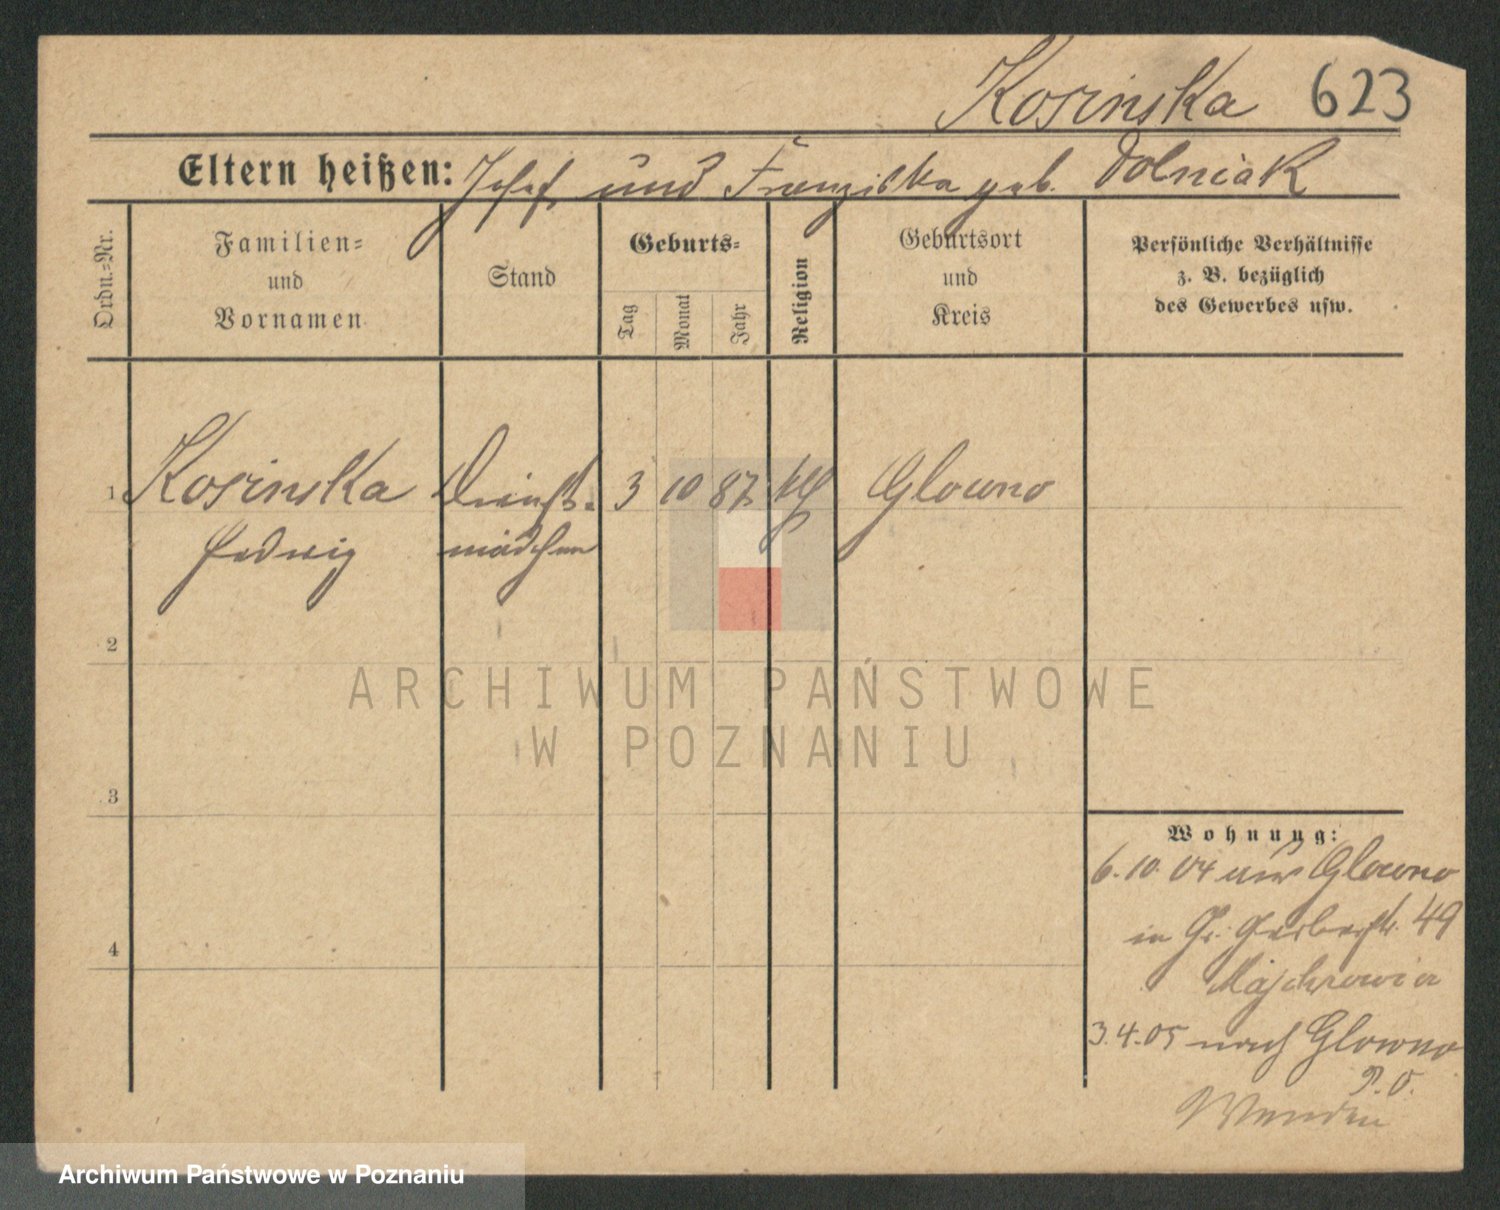 Kosinska 623
Eltern heißen: Josef und Franziska geb. Dolniak
Ordn.-Nr.
Familien-
und
Vornamen
Stand
Geburts-
Tag
Monat
Jahr
Religion
Geburtsort
und
Kreis
Persönliche Verhältnisse
z. B. bezüglich
des Gewerbes usw.
1 Kosinska Dienst- 3 10 87 kth Glowno
Hedwig mädchen
2
ARCHIWUM PAŃSTWOWE
W POZNANIU
3
Wohnung:
6.10.04 aus Glowno
in Gr. Gerberstr. 49
4
3.4.05 nach Glowno
P. O.
Archiwum Państwowe w Poznaniu